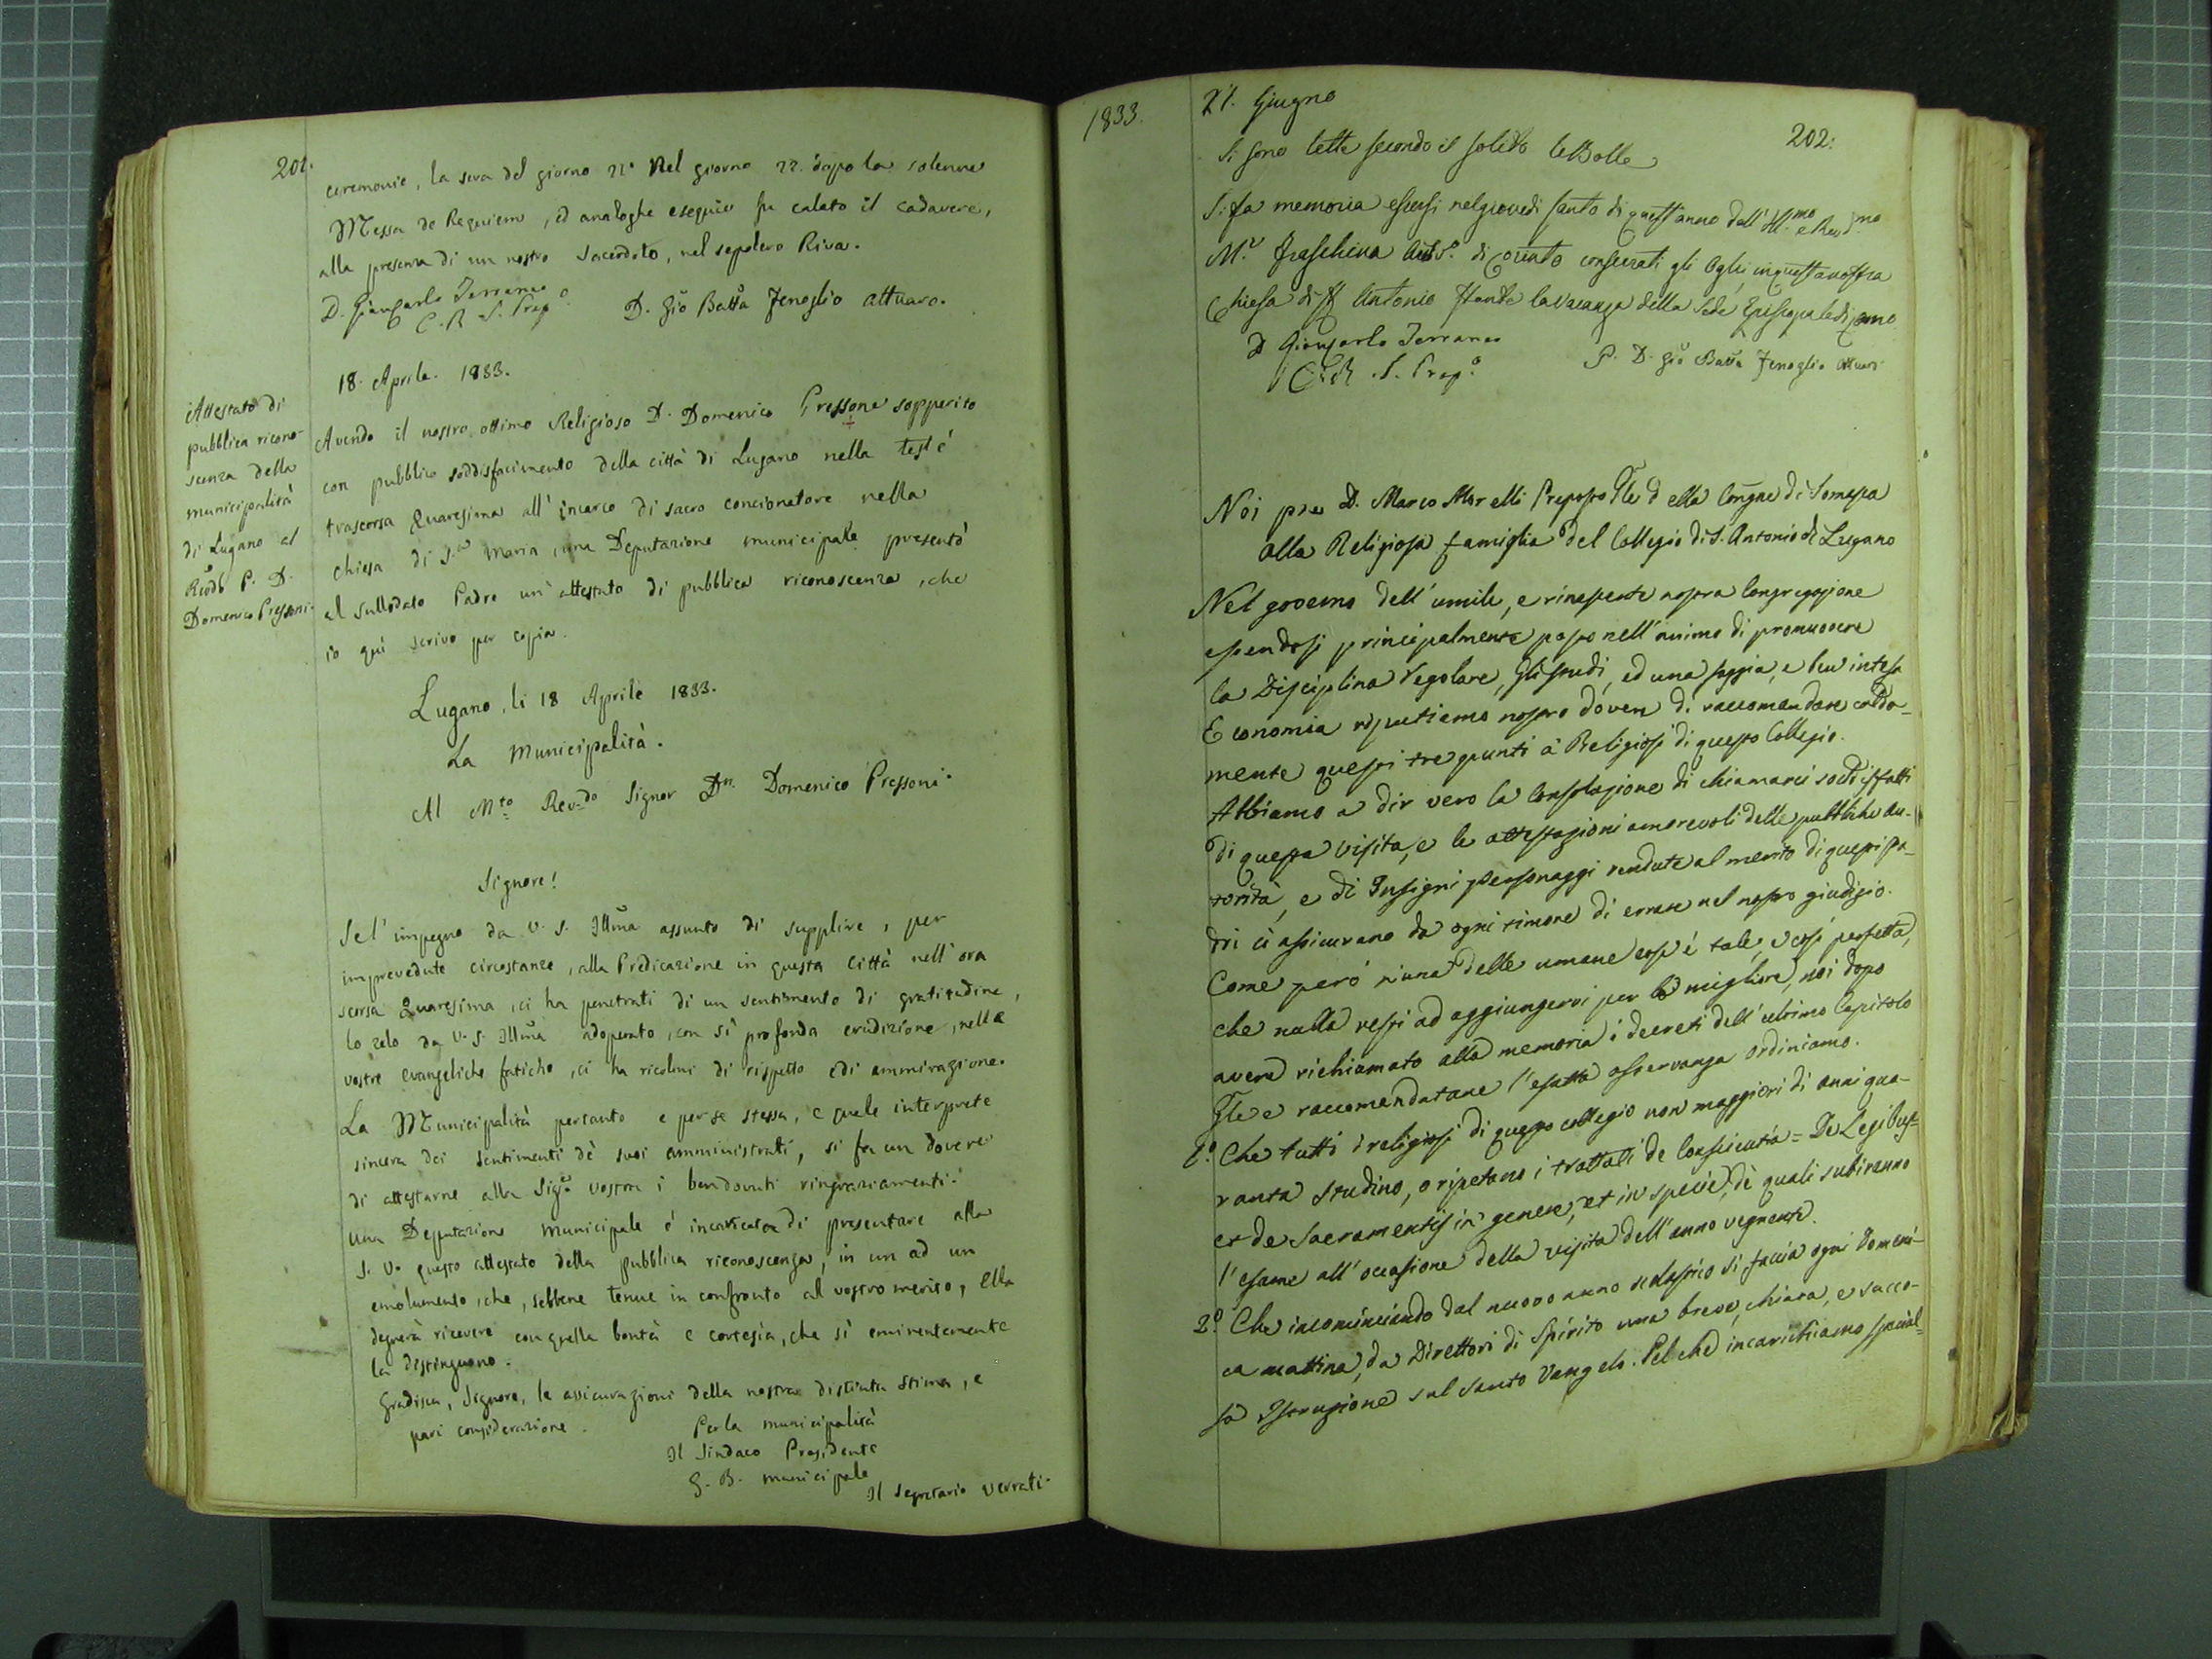 201.
ceremonie, la sera del giorno 21. Nel giorno 22. dopo la solenne
Messa de Requiem, ed analoghe esequie fu calato il cadavere,
alla presenza di un nostro Sacerdote, nel sepolcro Riva.
D. Giancarlo Terraneo
C. R. S. Prep.o
D. Gio Batta Fenoglio attuaro.
18. Aprile. 1833.
Attestato di
pubblica ricono-
scenza della
municipalità
di Lugano al
Revdo P. D.
Domenico Pressoni.
Avendo il nostro ottimo Religioso D. Domenico Pressone sopperito
con pubblico soddisfacimento della città di Lugano nella testé
trascorsa Quaresima all' incarco di sacro concionatore nella
chiesa di S.a Maria, una Deputazione municipale presentò
al sullodato Padre un' attestato di pubblica riconoscenza, che
io quì scrivo per copia.
Lugano, li 18 Aprile 1833.
La Municipalità.
Al M.to Rev.do Signor Dn. Domenico Pressoni.
Signore!
Se l' impegno da V. S. Illma assunto di supplire, per
imprevedute circostanze, alla Predicazione in questa Città nell' ora
scorsa Quaresima, ci ha penetrati di un sentimento di gratitudine,
lo zelo da V. S. Illma adoperato, con sì profonda erudizione, nelle
vostre evangeliche fatiche, ci ha ricolmi di rispetto e di ammirazione.
La Municipalità pertanto e per se stessa, e quale interprete
sincera dei sentimenti dè suoi amministrati, si fa un dovere
di attestarne alla Sig.a vostra i ben dovuti ringraziamenti.
Una Deputazione municipale é incaricata di presentare alla
S. V. questo attestato della pubblica riconoscenza, in un ad un
emolumento, che, sebbene tenue in confronto al vostro merito, Ella
degnerà ricevere con quella bontà e cortesia, che sì eminentemente
la distinguono.
Gradisca, Signore, le assicurazioni della nostra distinta stima, e
pari considerazione.
Per la municipalità
Il Sindaco Presidente
G. B. municipale
Il Segretario Verrati.
1833.
21. Giugno
202:
Si sono lette secondo il solito le Bolle
Si fa memoria essersi nel giovedì santo di quest' anno dall' Ill.mo e Rev.d.mo
M.r Fraschina di Corinto consecrati gli Oglii in questa nostra
Chiesa di S. Antonio stante la vacanza della Sede Episcopale di Como
D Giancarlo Terraneo
C. R. S. Prep.o
P. D. Gio Batta Fenoglio attuari
Noi pre D. Marco Morelli Preposto Gle della Congne di Somasca
alla Religiosa famiglia del Collegio di S. Antonio di Lugano
Nel governo dell' umile, e rinascente nostra Congregazione
essendosi principalmente posto nell' animo di promuovere
la Disciplina regolare, gli studi, ed una saggia, e ben intesa
Economia reputiamo nostro dovere di raccomandare calda-
mente questi tre punti a' Religiosi di questo Collegio.
Abbiamo a dir vero la consolazione di chiamarci soddisfatti
di questa visita, e le attestazioni amorevoli delle pubbliche Au-
torità, e di Insigni personaggi rendute al merito di questi Pa-
dri ci assicurano da ogni timore di errare nel nostro giudizio.
Come però niuna delle umane cose é tale, e così perfetta,
che nulla resti ad aggiungervi per lo migliore, noi dopo
avere richiamato alla memoria i decreti dell' ultimo Capitolo
Gle e raccomandatane l' esatta osservanza ordiniamo.
1.o Che tutti i religiosi di questo collegio non maggiori di anni qua-
ranta studino, o ripetano i trattati de Conscientia = De Legibus =
et de Sacramentis in genere, et in specie, dè quali subiranno
l' esame all' occasione della visita dell' anno vegnente.
2.o Che incominciando dal nuovo anno scolastico si faccia ogni Domeni-
ca mattina, da Direttori di Spirito una breve, chiara, e succo-
sa Istruzione sul Santo Vangelo. Pel che incarichiamo spezial-